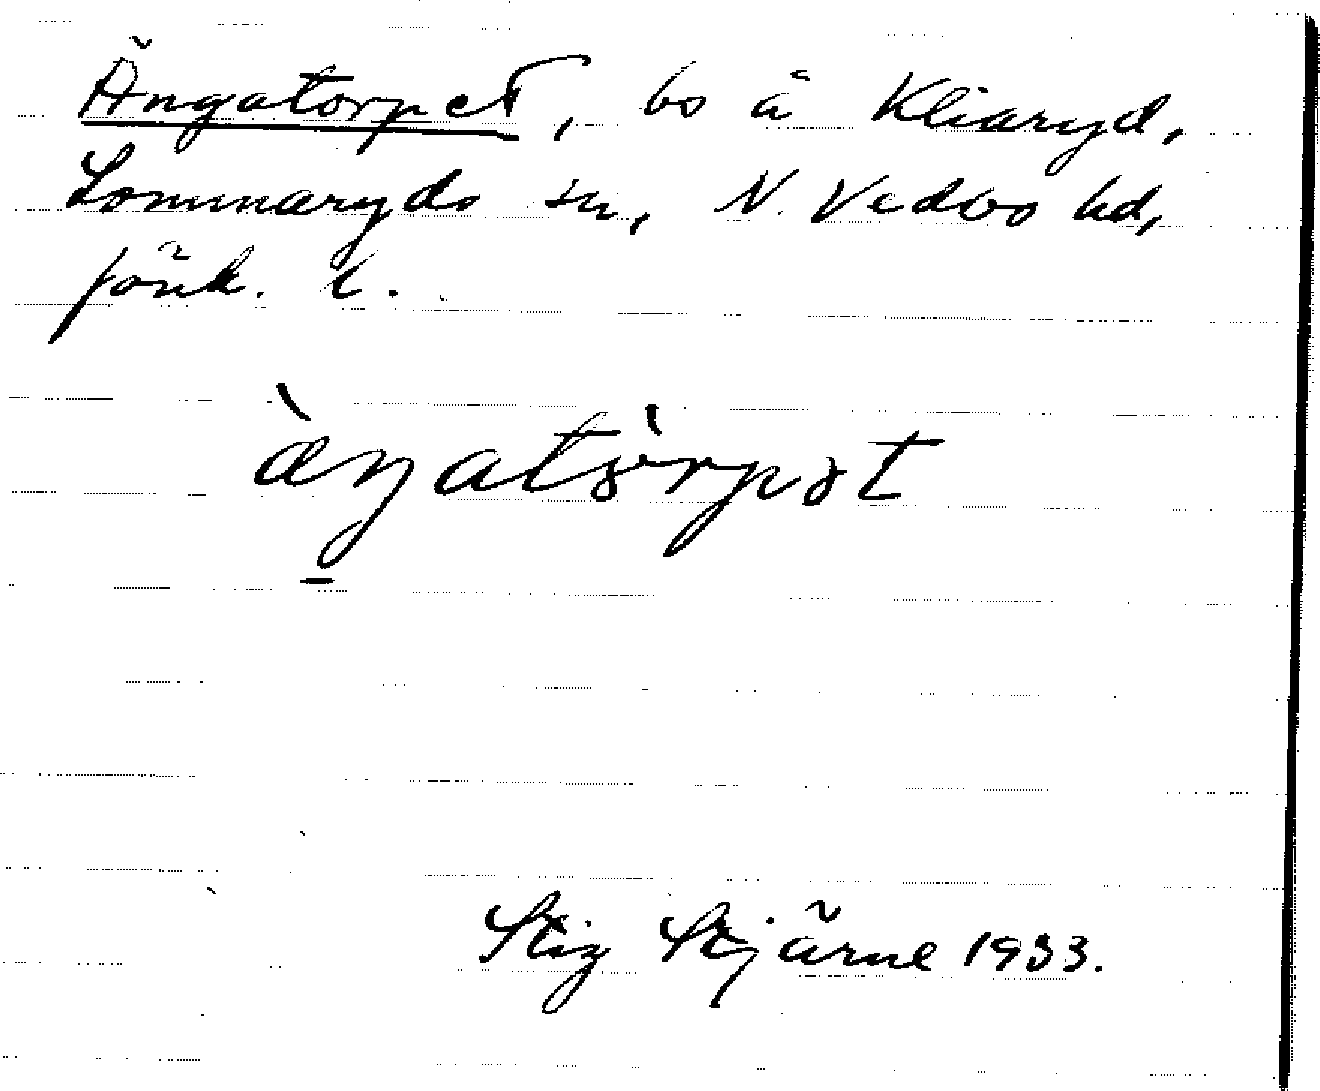 Ängatorpet, bs å Kliaryd,
Lommaryds sn, N. Vedbo hd,
Jönk. l.
àŋatòrpət
Stig Stjärne 1933.